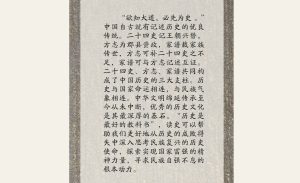 “欲知大道，必先为史。”
中国自古就有记述历史的优良
传统。二十四史记王朝兴替，
方志为郡县资政，家谱载家族
传世，方志可补二十四史之不
足，家谱可与方志记述互证。
二十四史、方志、家谱共同构
成了中国历史的三大支柱。历
史与国家命运相连，与民族气
象相连。中华文明绵延传承至
今从未中断，优秀的历史文化
是其最深厚的基石。“历史是
最好的教科书”，读史可以帮
助我们更好地从历史的成败得
失中深入思考民族复兴的历史
使命，探索实现国家富强的精
神力量，寻求民族自强不息的
根本动力。